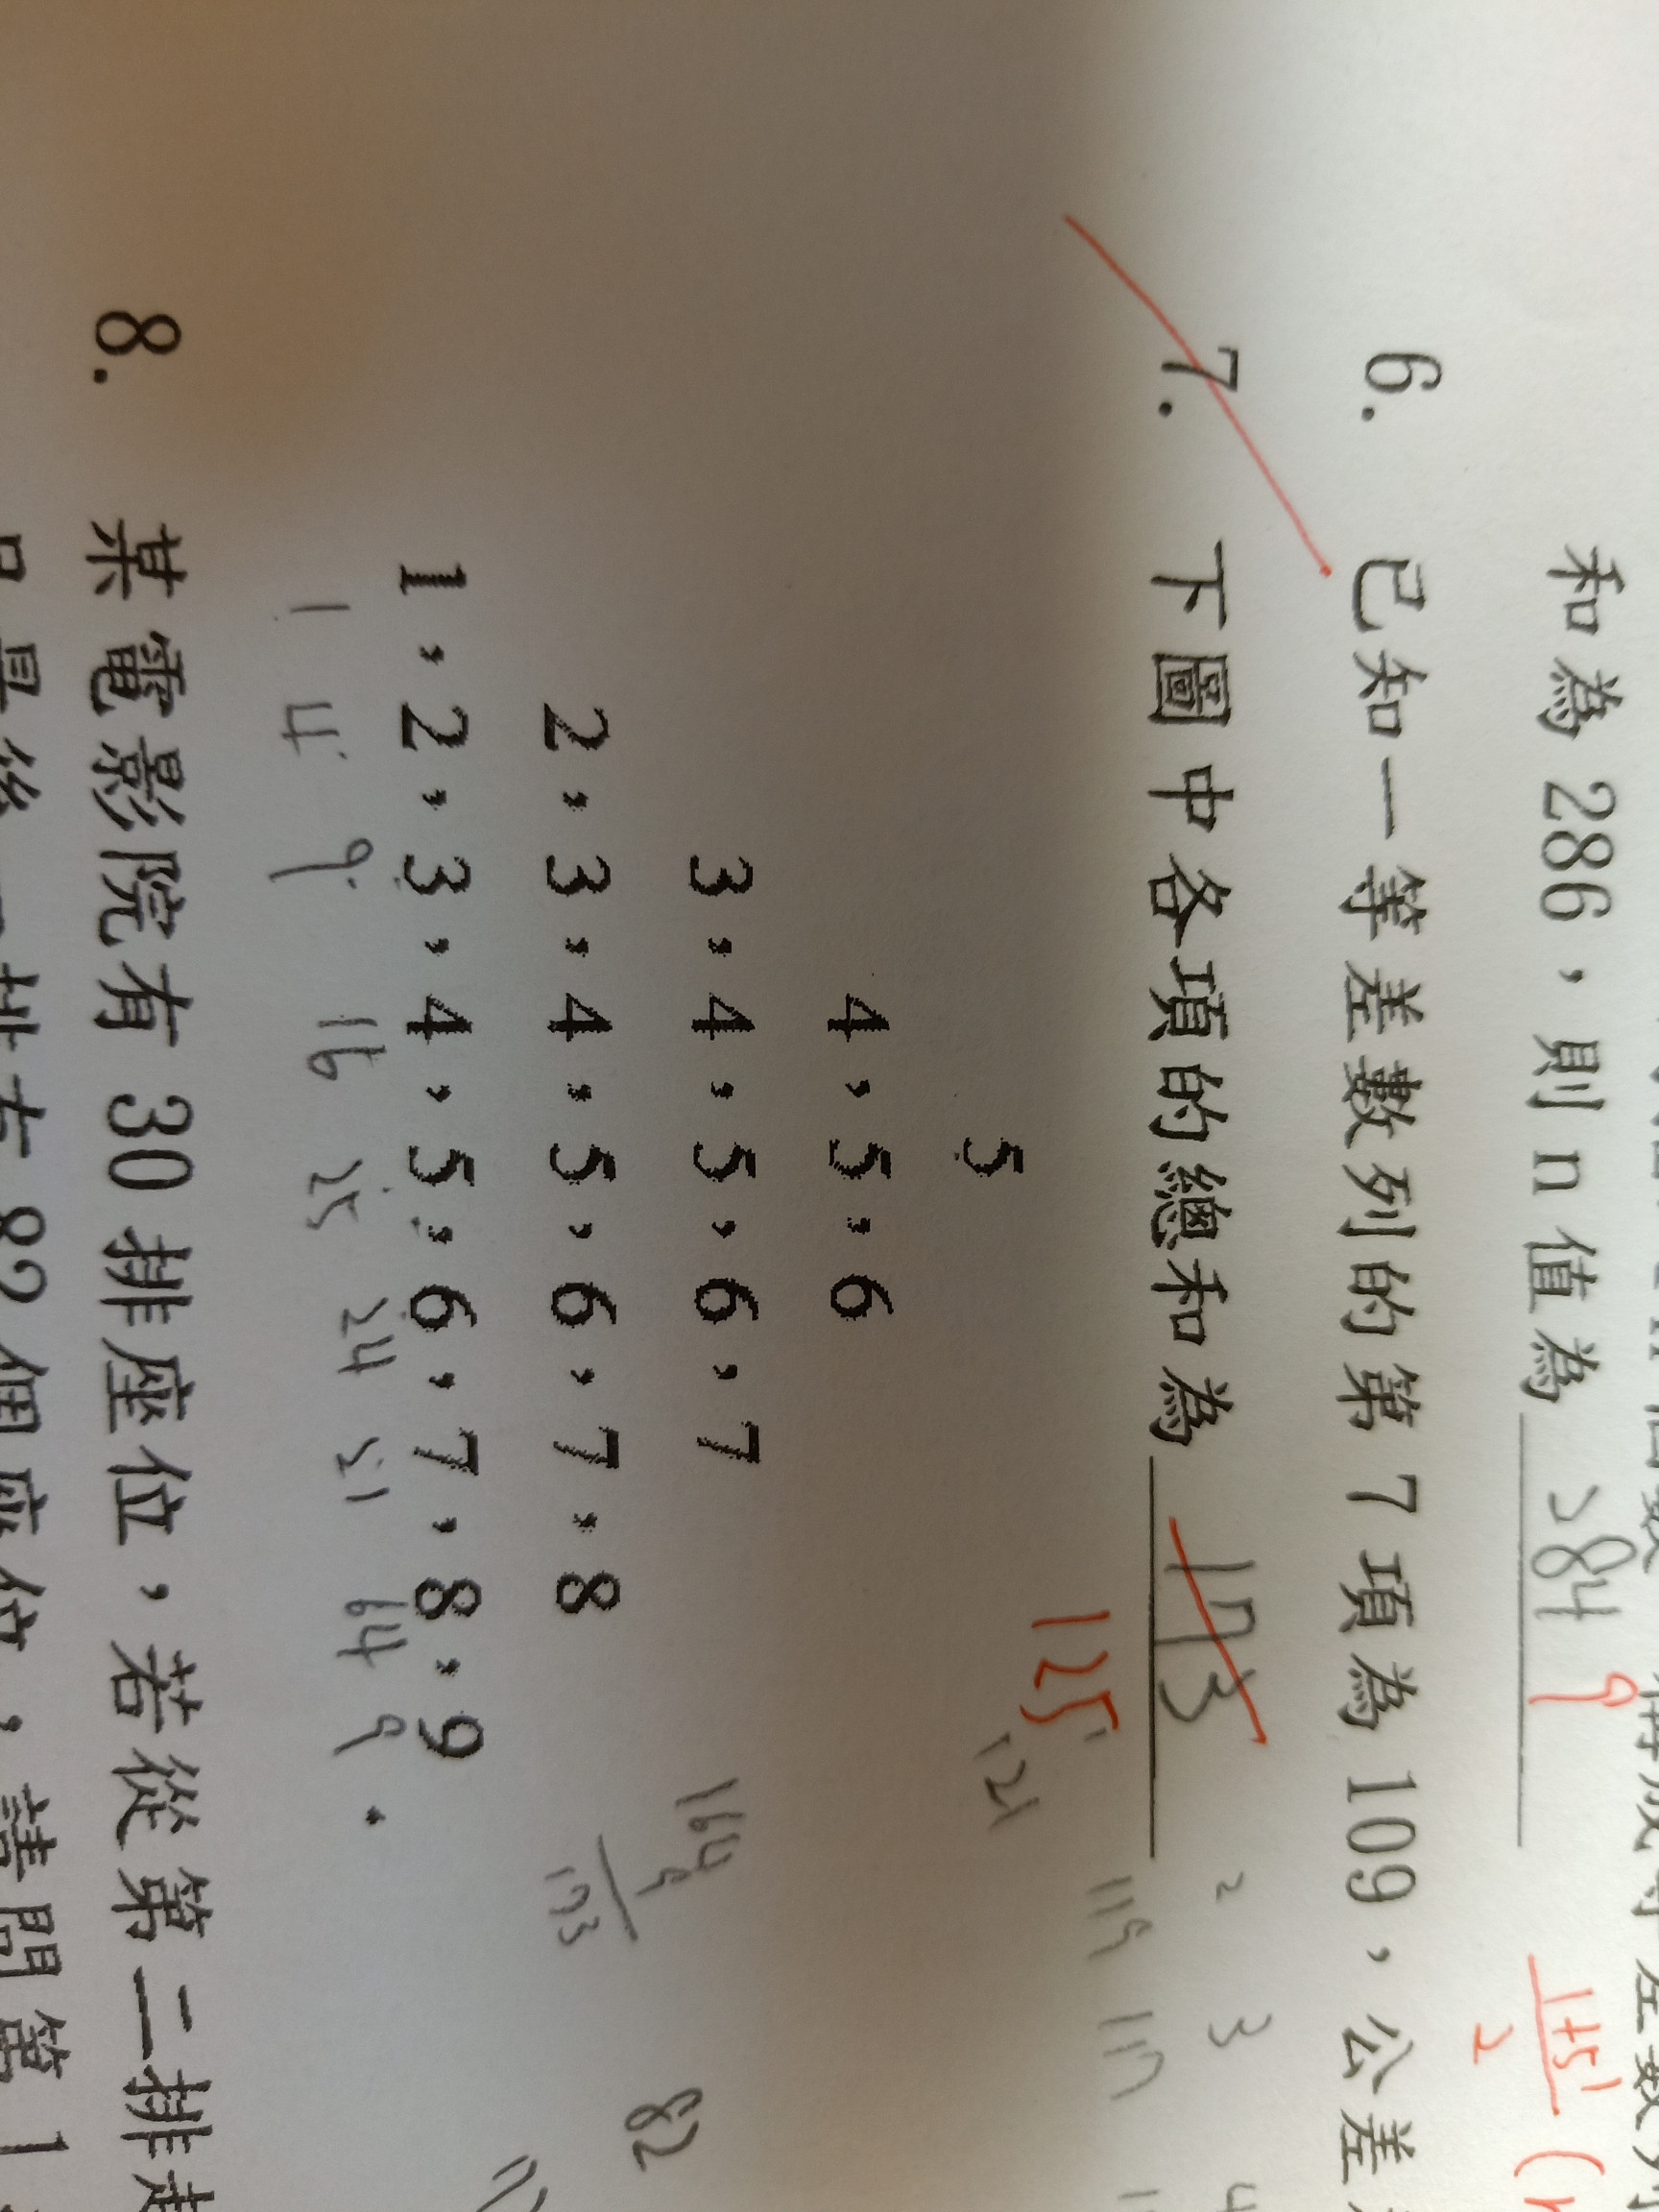 和為 286，則 n 值為 284 9
1+51
2
6. 已知一等差數列的第 7 項為 109，公差
2 3 4
7. 下圖中各項的總和為 173
119 117
125
121
5
4，5，6
3，4，5，6，7
164
9
173
82
2，3，4，5，6，7，8
1，2，3，4，5，6，7，8，9
1 4 9 16 25 24 21 64 9
8. 某電影院有 30 排座位，若從第二排起